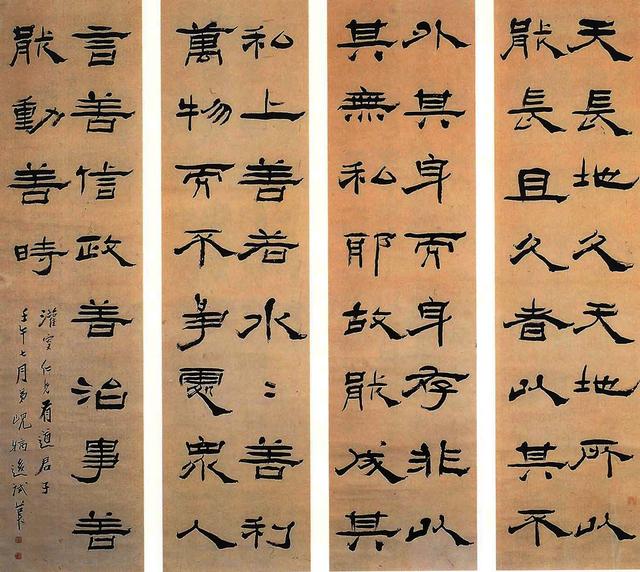 天長地久天地所以
能長且久者以其不
外其身而身存非以
其無私耶故能成其
私上善若水〻善利
萬物而不爭處衆人
言善信政善治事善
能動善時
仁兄有道君子
壬午七月弟峴